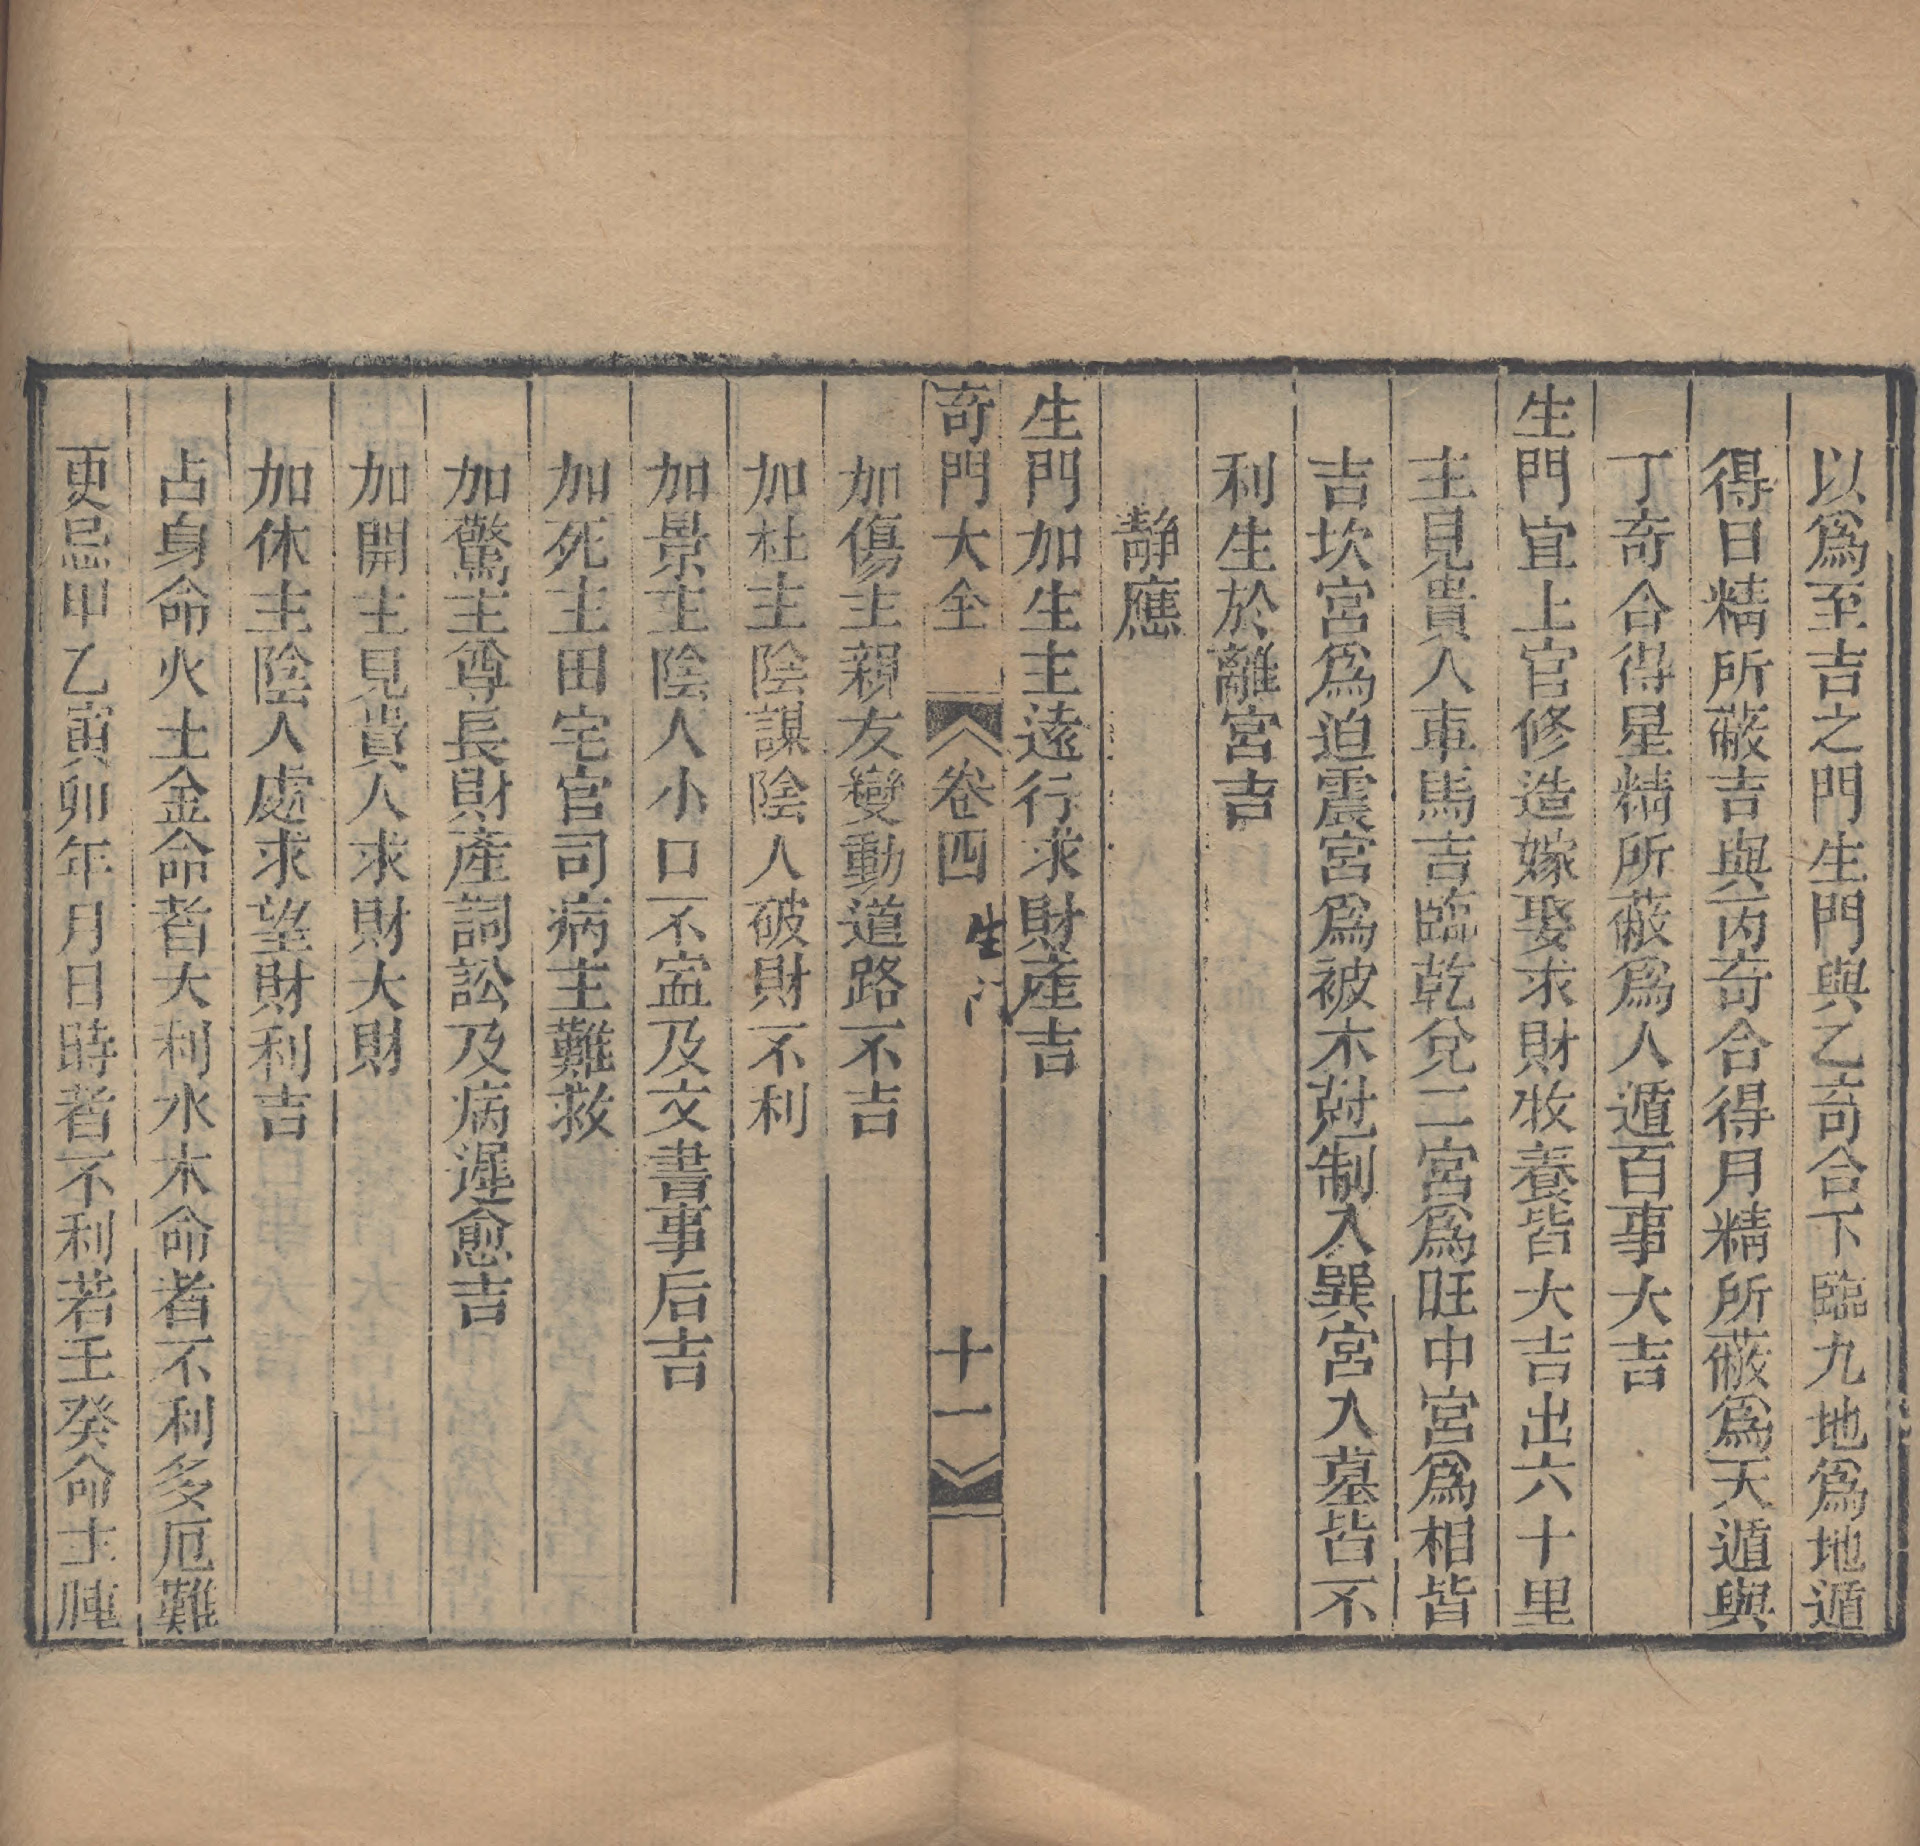 以爲至吉之門生門與乙奇合下臨九地爲地遁
得日精所蔽吉與六丙奇合得月精所蔽爲天遁與
丁奇合得星精所蔽爲人遁百事大吉
生門宜上官修造嫁娶求財牧養皆大吉出六十里
主見貴人車馬吉臨乾兌二宮爲旺中宮爲相皆
吉坎宮爲迫震宮爲被木尅制入巽宮入墓皆不
利生於離宮吉
靜應
生門加生主遠行求財產吉
奇門大全 卷四 生门 十一
加傷主親友變動道路不吉
加杜主陰謀陰人破財不利
加景主陰人小口不寍及文書事后吉
加死主田宅官司病主難救
加驚主尊長財產詞訟及病遲愈吉
加開主見貴人求財大財
加休主陰人處求望財利吉
占身命火土金命者大利水木命者不利多厄難
更忌甲乙寅卯年月日時者不利若壬癸命主腫